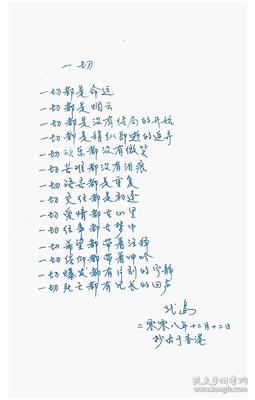 一切
一切都是命运
一切都是烟云
一切都是没有结局的开始
一切都是稍纵即逝的追寻
一切欢乐都没有微笑
一切苦难都没有泪痕
一切语言都是重复
一切交往都是初逢
一切爱情都在心里
一切往事都在梦中
一切希望都带着注释
一切信仰都带着呻吟
一切爆发都有片刻的宁静
一切死亡都有冗长的回声
北岛
二零零八年十二月十二日
抄于香港